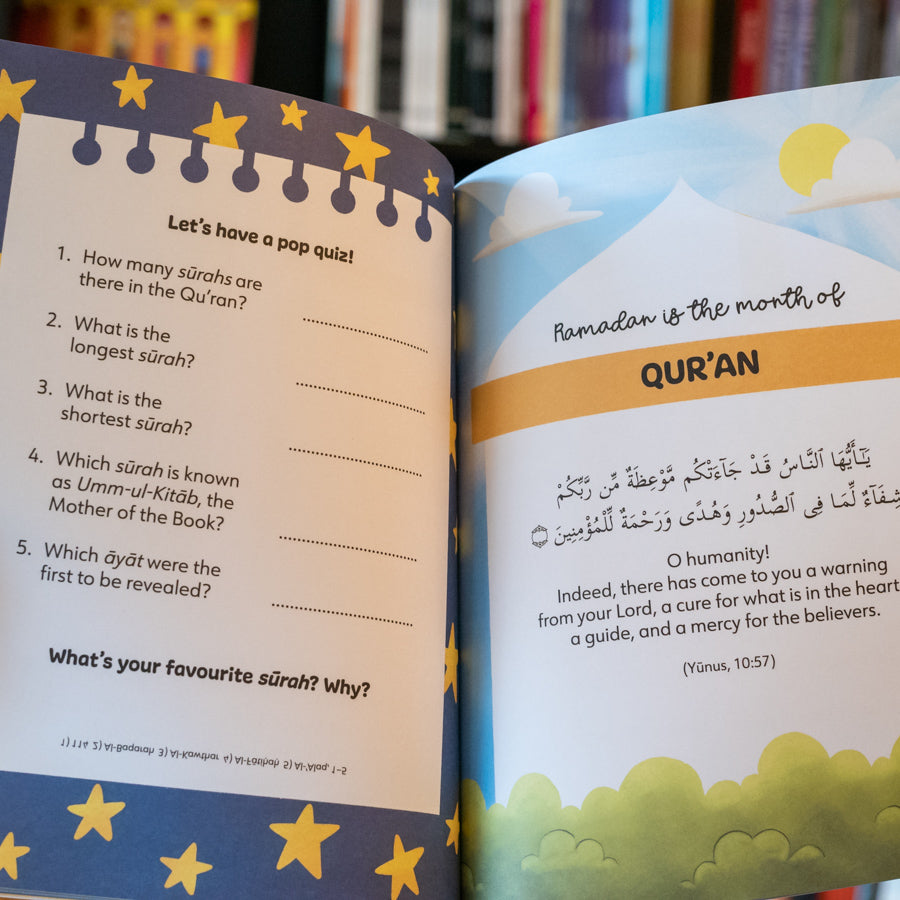 Let's have a pop quiz!
1. How many sūrahs are
there in the Qu'ran?
2. What is the
longest sūrah?
3. What is the
shortest sūrah?
4. Which sūrah is known
as Umm-ul-Kitāb, the
Mother of the Book?
5. Which āyāt were the
first to be revealed?
What's your favourite sūrah? Why?
1) 114 2) Al-Baqarah 3) Al-Kawthar 4) Al-Fātiḥah 5) Al-'Alaq, 1-5
Ramadan is the month of
QUR'AN
يَـٰٓأَيُّهَا ٱلنَّاسُ قَدْ جَآءَتْكُم مَّوْعِظَةٌ مِّن رَّبِّكُمْ
شِفَآءٌ لِّمَا فِى ٱلصُّدُورِ وَهُدًى وَرَحْمَةٌ لِّلْمُؤْمِنِينَ
O humanity!
Indeed, there has come to you a warning
from your Lord, a cure for what is in the heart
a guide, and a mercy for the believers.
(Yūnus, 10:57)